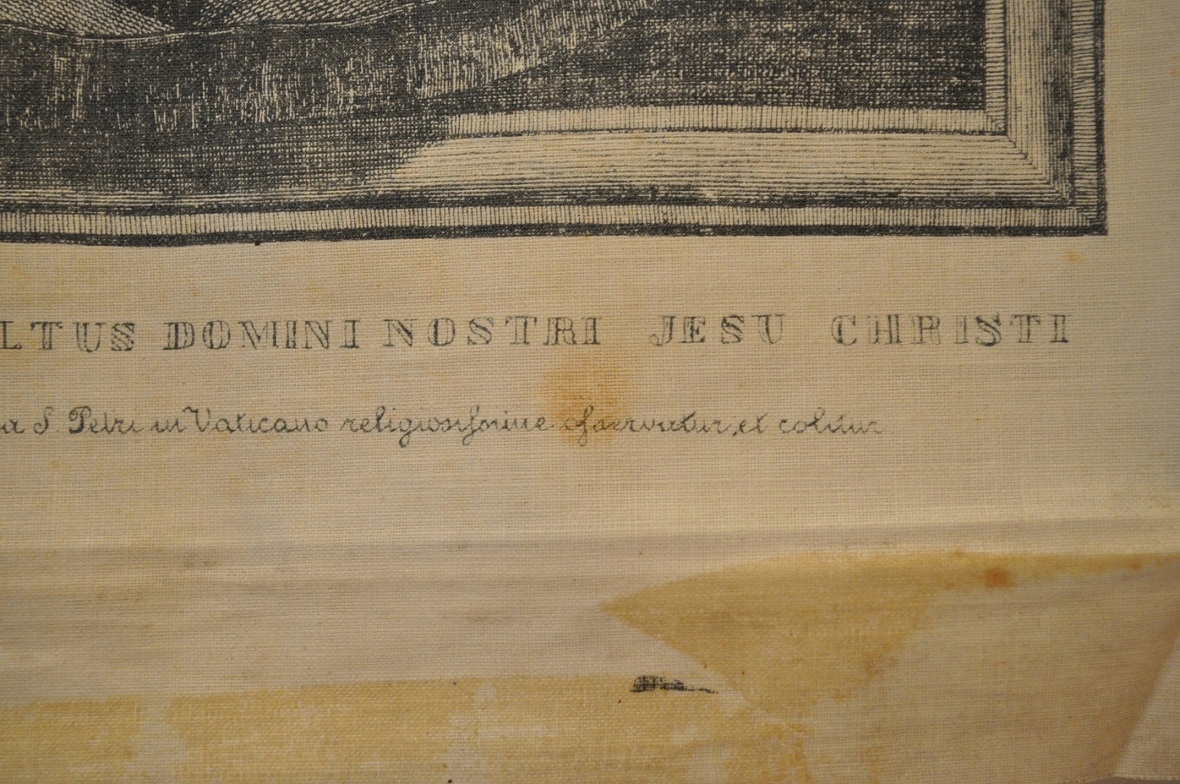 LTUS DOMINI NOSTRI JESU CHRISTI
a S. Petri in Vaticano religiosissime asservatur, et colitur